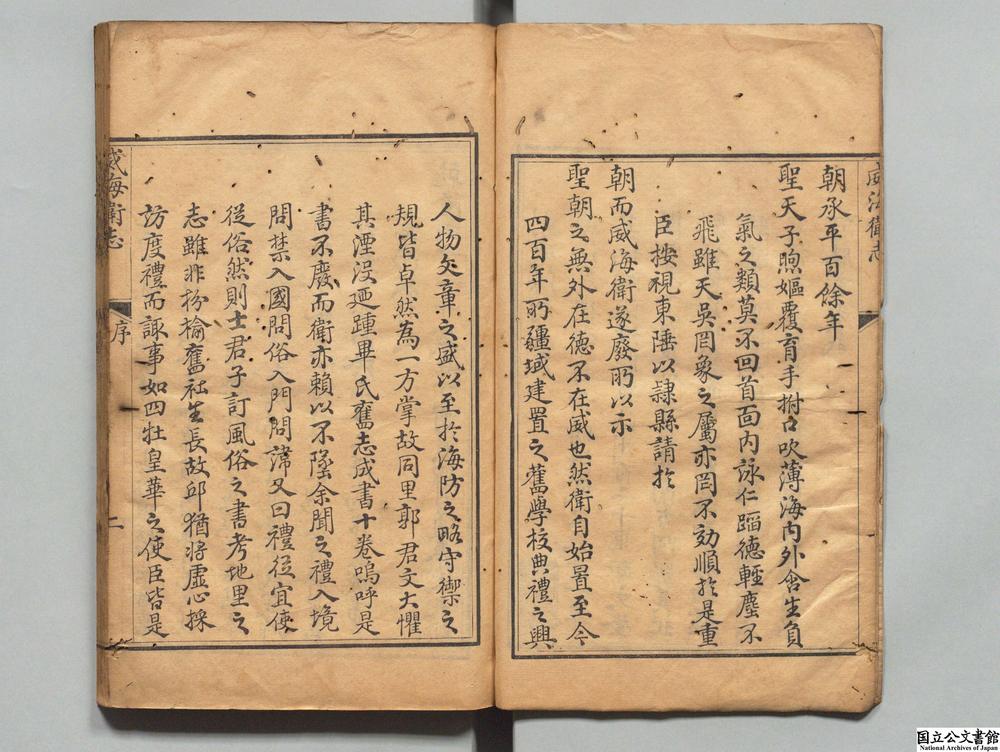 威海衛志
朝承平百餘年
聖天子喣嫗覆育手拊口吹薄海內外含生負
氣之類莫不回首面內詠仁蹈德輕塵不
飛雖天吳罔象之屬亦罔不効順於是重
臣按視東陲以隷縣請於
朝而威海衛遂廢所以示
聖朝之無外在德不在威也然衛自始置至今
四百年所疆域建置之舊學校典禮之興
人物文章之盛以至於海防之略守禦之
規皆卓然為一方掌故同里郭君文大懼
其湮沒迺踵畢氏舊志成書十卷嗚呼是
書不廢而衛亦賴以不墜余聞之禮入境
問禁入國問俗入門問諱又曰禮從宜使
從俗然則士君子訂風俗之書考地里之
志雖非枌榆舊社生長故邱猶將虛心採
訪度禮而諏事如四牡皇華之使臣皆是
威海衛志
序
二
国立公文書館
National Archives of Japan